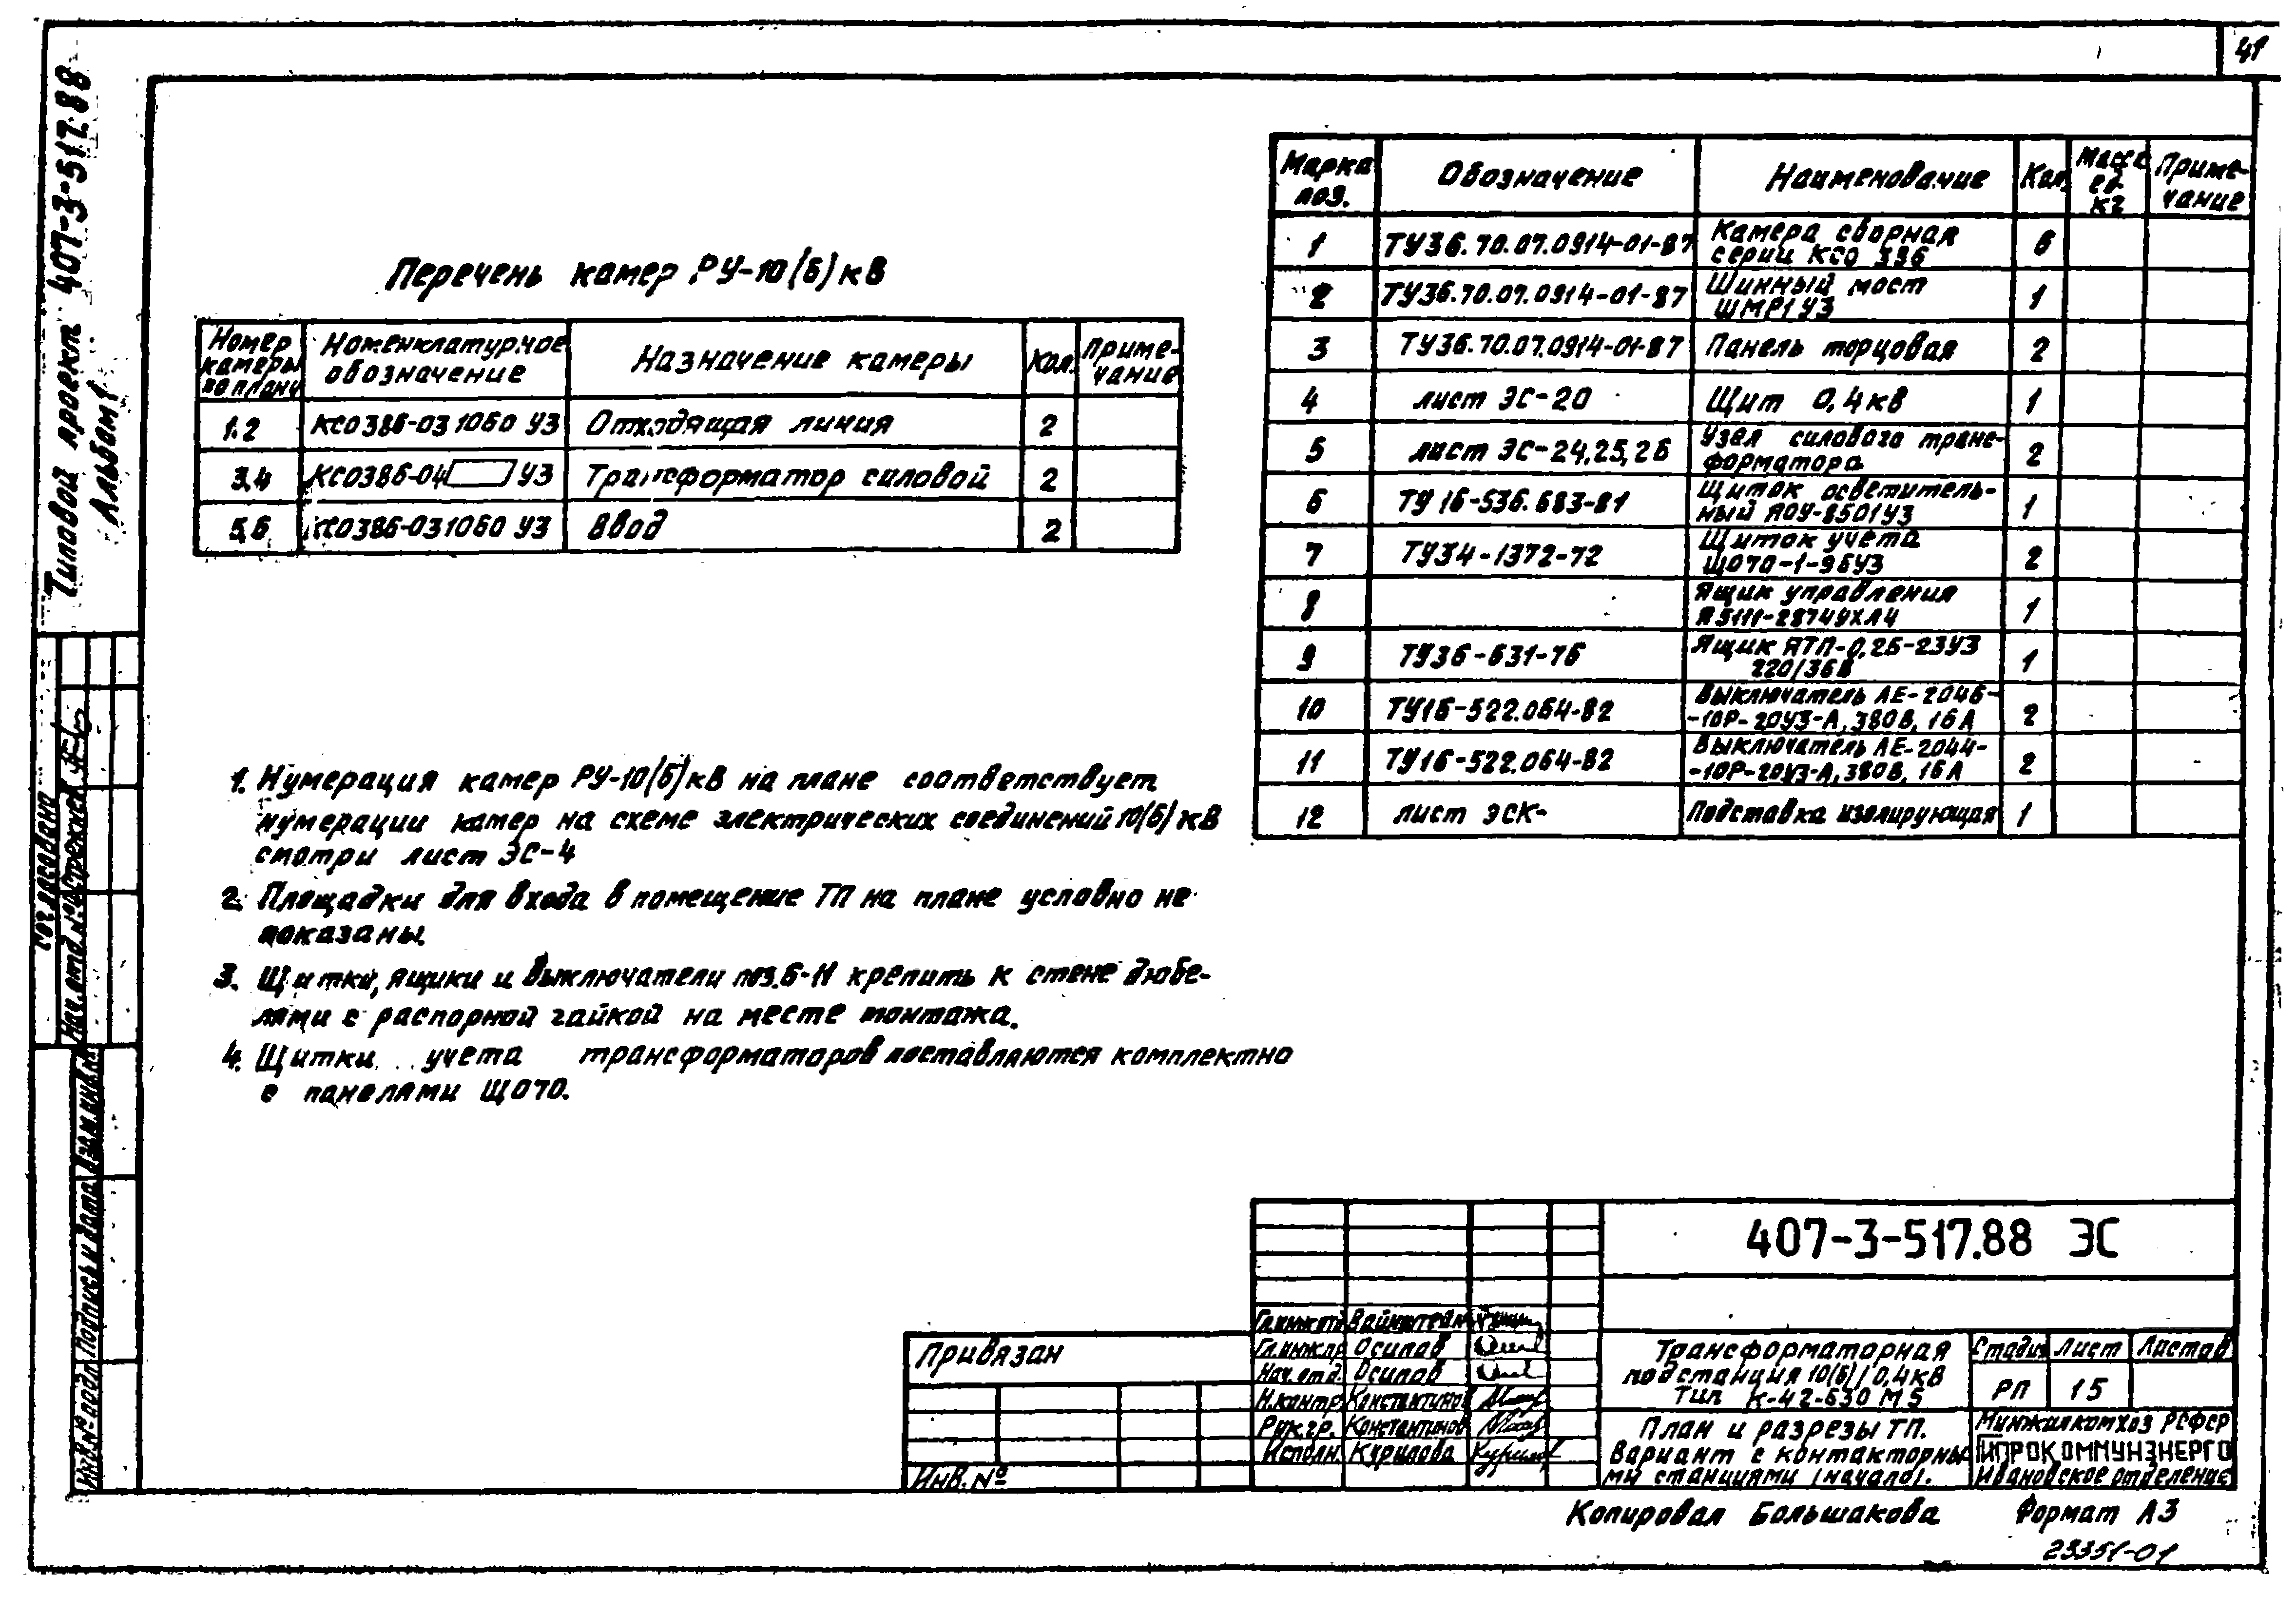 41
Типовой проект 407-3-517.88
Альбом 1
Перечень камер РУ-10(6)кВ
Номер камеры по плану | Номенклатурное обозначение | Назначение камеры | Кол. | Примечание
1.2 | КСО386-03 1060 У3 | Отходящая линия | 2
3,4 | КСО386-04 У3 | Трансформатор силовой | 2
5,6 | КСО386-03 1060 У3 | Ввод | 2
1. Нумерация камер РУ-10(6)кВ на плане соответствует
нумерации камер на схеме электрических соединений 10(6)кВ
смотри лист ЭС-4
2. Площадки для входа в помещение ТП на плане условно не
показаны.
3. Щитки, ящики и выключатели поз.6-11 крепить к стене дюбе-
лями с распорной гайкой на месте монтажа.
4. Щитки учета трансформаторов поставляются комплектно
с панелями ЩО70.
Марка поз. | Обозначение | Наименование | Кол. | Масса ед. кг | Примечание
1 | ТУ36.70.07.0914-01-87 | Камера сборная серии КСО 386 | 6
2 | ТУ36.70.07.0914-01-87 | Шинный мост ШМР1 У3 | 1
3 | ТУ36.70.07.0914-01-87 | Панель торцовая | 2
4 | лист ЭС-20 | Щит 0,4кв | 1
5 | лист ЭС-24,25,26 | Узел силового транс-форматора | 2
6 | ТУ 16-536.683-81 | Щиток осветитель-ный ЯОУ-8501У3 | 1
7 | ТУ34-1372-72 | Щиток учета ЩО70-1-96У3 | 2
8 | Ящик управления Я5111-2874УХЛ4 | 1
9 | ТУ36-631-76 | Ящик ЯТП-0,25-23У3 220/36В | 1
10 | ТУ16-522.064-82 | Выключатель АЕ-2046--10Р-20У3-А, 380В, 16А | 2
11 | ТУ16-522.064-82 | Выключатель АЕ-2044--10Р-20У3-А, 380В, 16А | 2
12 | лист ЭСК- | Подставка изолирующая | 1
Согласовано
Нач.отд.
Взам.инв.№
Подпись и дата
Инв.№ подл.
Привязан
Инв.№
407-3-517.88 ЭС
Гл.инж.отд. Вайнштейн
Гл.инж.пр. Осипов
Нач.отд. Осипов
Н.контр. Константинов
Рук.гр. Константинов
Исполн. Курилова
Трансформаторная
подстанция 10(6)/0,4кв
Тип К-42-630 М5
Стадия | Лист | Листов
РП | 15
План и разрезы ТП.
Вариант с контакторны-
ми станциями (начало).
Минжилкомхоз РСФСР
ГИПРОКОММУНЭНЕРГО
Ивановское отделение
Копировал Большакова Формат А3
23351-01